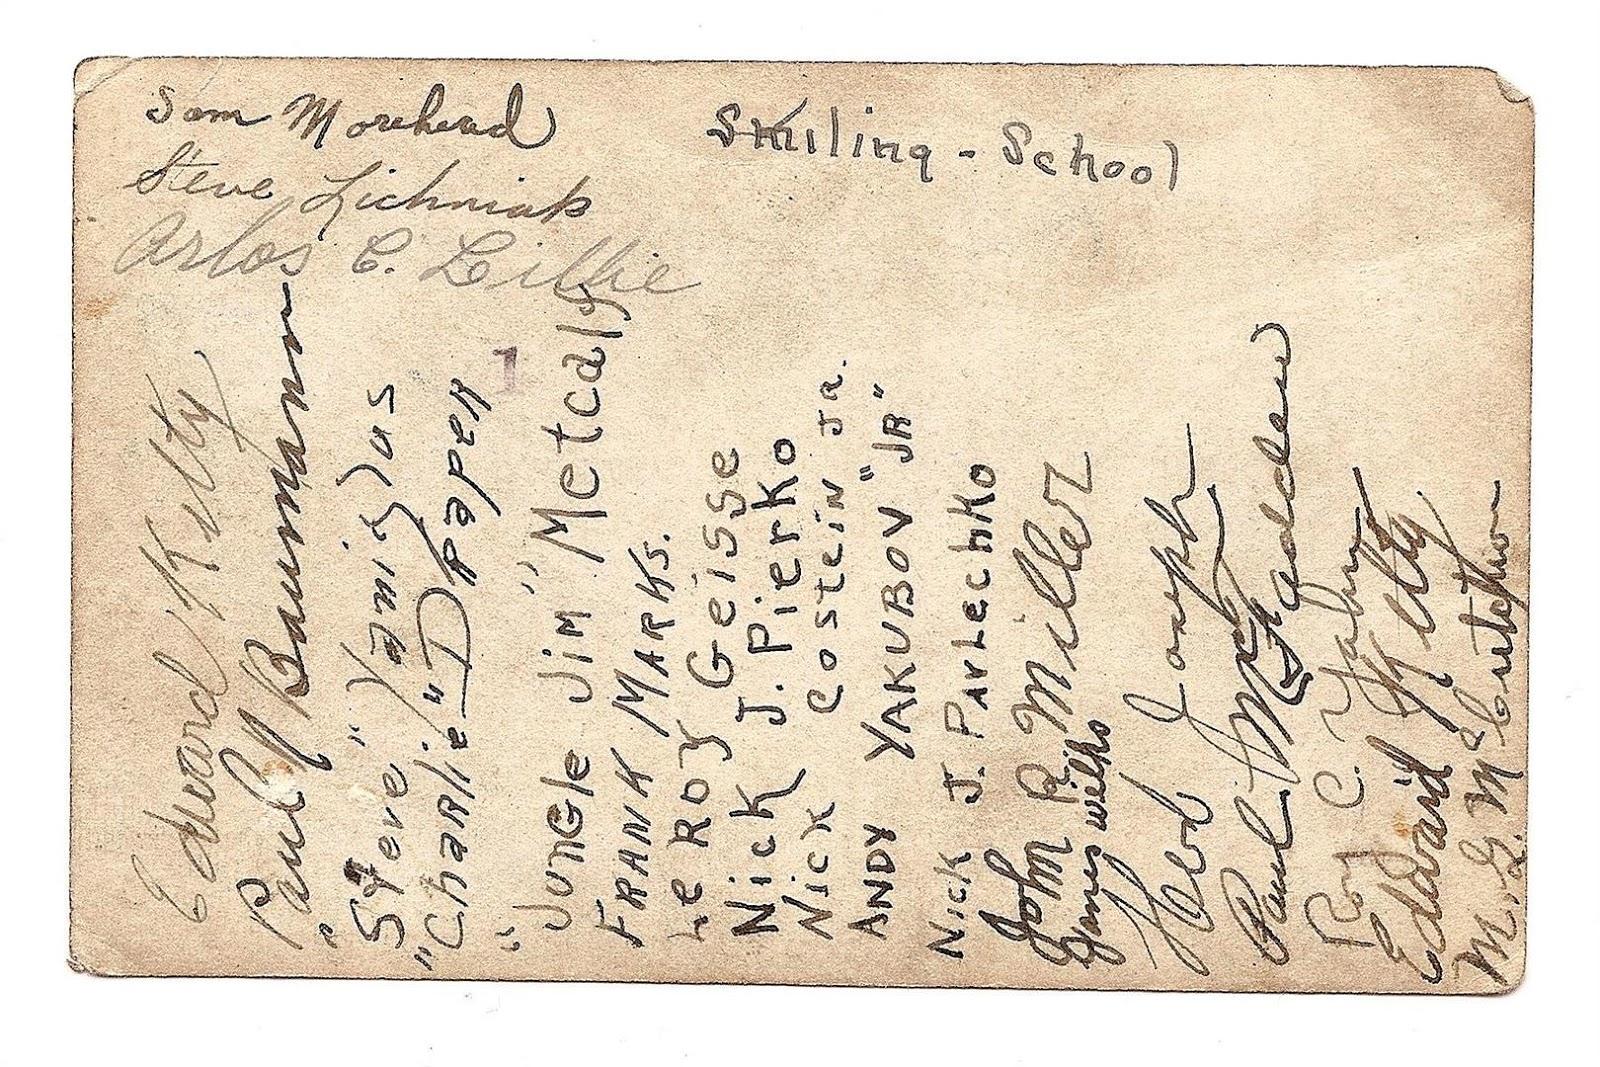 Sam Morehead
Smiling - School
Steve Lichniak
Arlos C. Lillie
1
Edward Kelty
Paul Baumann
"Steve" Yamidjus
"Charlie" Draper
"Jungle Jim" Metcalf
FRANK MARKS.
LeRoy Geisse
Nick J. Pierko
Nick Costein Jr.
ANDY YAKUBOV "JR"
Nick J. Pavlechko
John R. Miller
James Wilks
Herb Joseph
Paul McFadden
Roy C. Yahn
Edward Kelty
M. G. McCutcheon